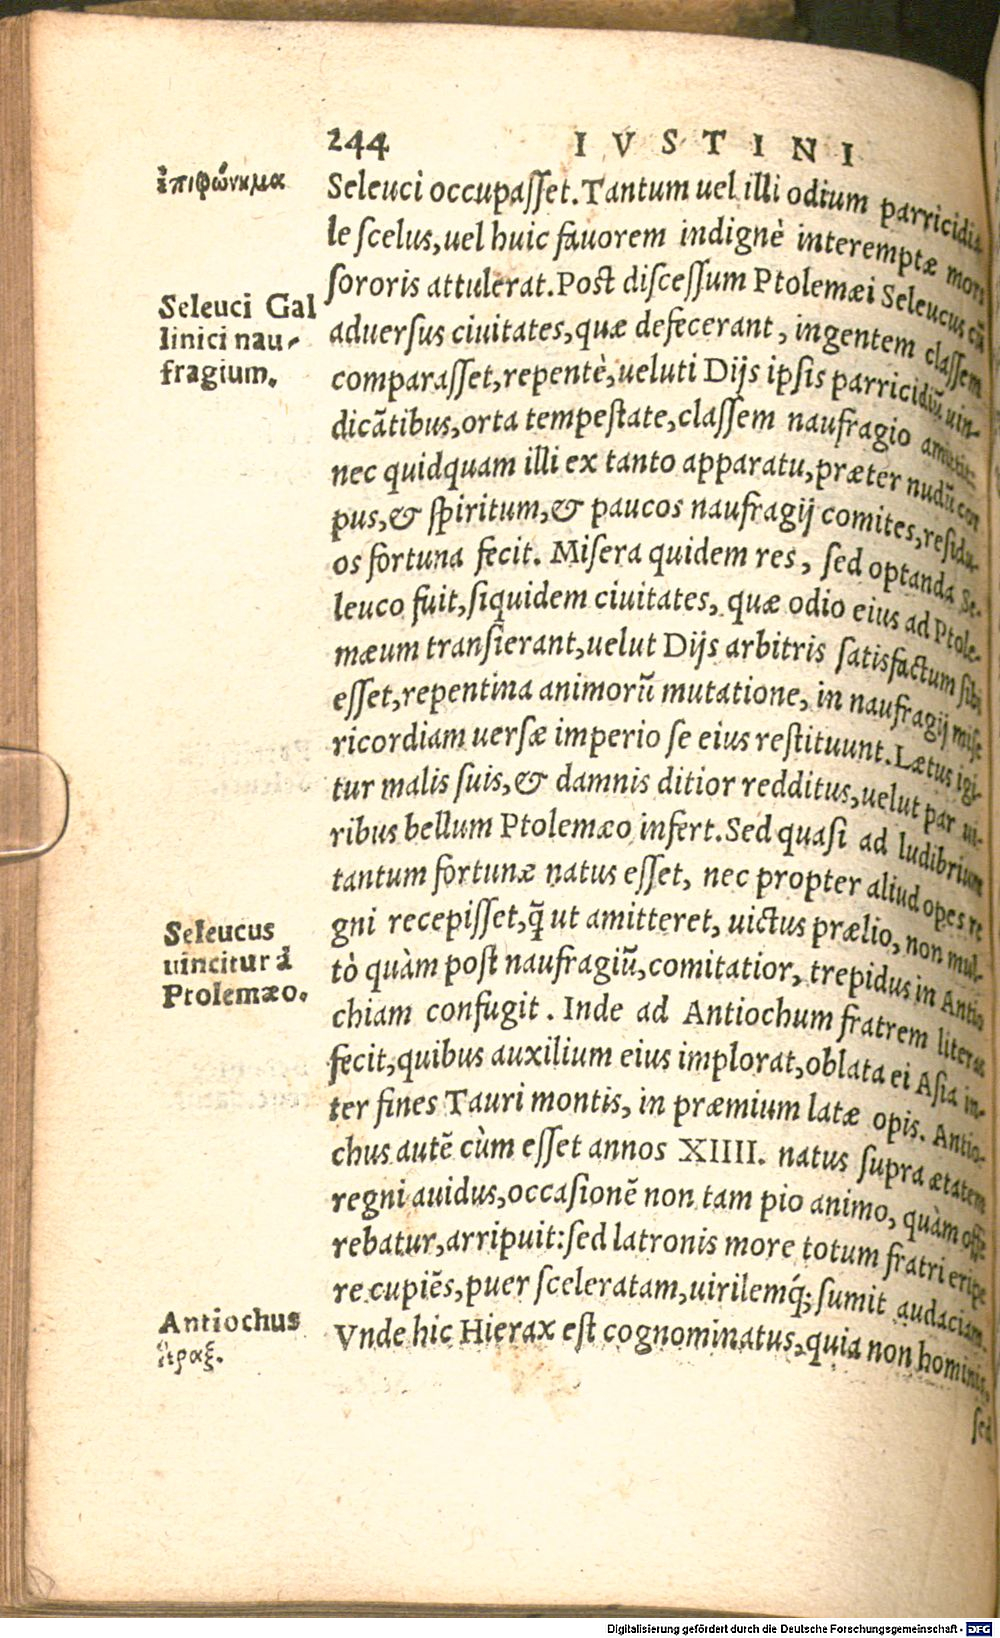 244 IVSTINI
ἐπιφώνημα
Seleuci occupasset. Tantum uel illi odium parricidia-
le scelus, uel huic fauorem indignè interemptæ mors
sororis attulerat. Post discessum Ptolemæi Seleucus cũ
Seleuci Gal
linici nau-
fragium.
aduersus ciuitates, quæ defecerant, ingentem classem
comparasset, repentè, ueluti Dijs ipsis parricidiũ uin-
dicãtibus, orta tempestate, classem naufragio amittit:
nec quidquam illi ex tanto apparatu, præter nudũ cor
pus, & spiritum, & paucos naufragij comites, residu-
os fortuna fecit. Misera quidem res, sed optanda Se-
leuco fuit, siquidem ciuitates, quæ odio eius ad Ptole-
mæum transierant, uelut Dijs arbitris satisfactum sibi
esset, repentina animorũ mutatione, in naufragij mise
ricordiam uersæ imperio se eius restituunt. Lætus igi-
tur malis suis, & damnis ditior redditus, uelut par ui-
ribus bellum Ptolemæo infert. Sed quasi ad ludibrium
tantum fortunæ natus esset, nec propter aliud opes re
gni recepisset, q̃ ut amitteret, uictus prælio, non mul-
Seleucus
uincitur à
Ptolemæo.
tò quàm post naufragiũ, comitatior, trepidus in Antio
chiam confugit. Inde ad Antiochum fratrem literas
fecit, quibus auxilium eius implorat, oblata ei Asia in-
ter fines Tauri montis, in præmium latæ opis. Antio-
chus autẽ cùm esset annos XIIII. natus supra ætatem
regni auidus, occasionẽ non tam pio animo, quàm offe
rebatur, arripuit: sed latronis more totum fratri eripe
re cupiẽs, puer sceleratam, uirilemq́; sumit audaciam.
Antiochus
ἱέραξ.
Vnde hic Hierax est cognominatus, quia non hominis,
sed
Digitalisierung gefördert durch die Deutsche Forschungsgemeinschaft - DFG